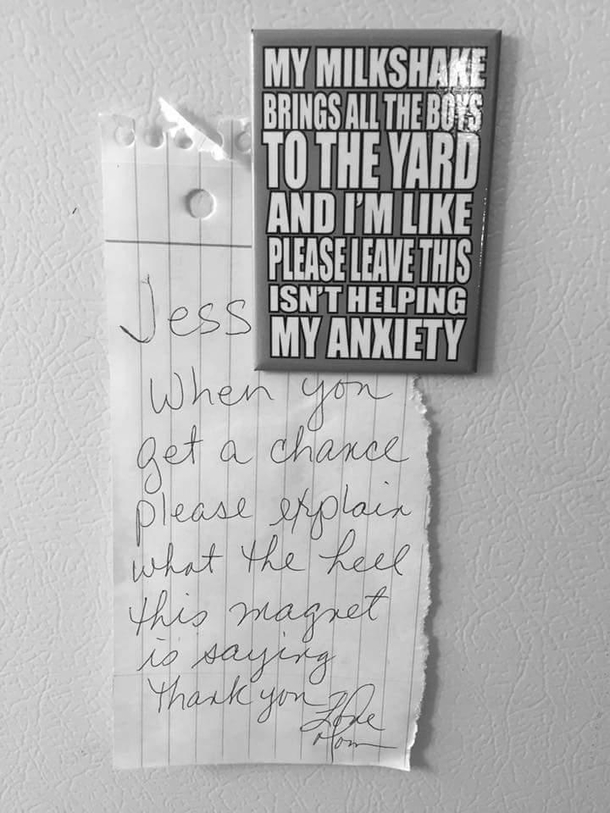 MY MILKSHAKE
BRINGS ALL THE BOYS
TO THE YARD
AND I'M LIKE
PLEASE LEAVE THIS
ISN'T HELPING
MY ANXIETY
Jess
When you
get a chance
please explain
what the hell
this magnet
is saying
Thank you
Love
Mom